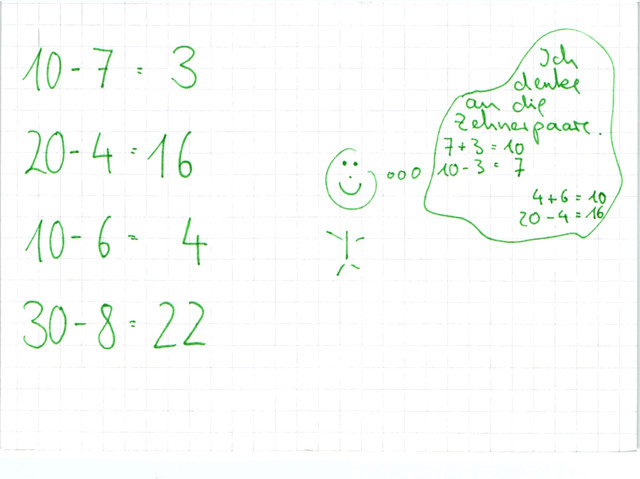 10 - 7 = 3
20 - 4 = 16
10 - 6 = 4
30 - 8 = 22
Ich
denke
an die
Zehnerpaare.
7 + 3 = 10
10 - 3 = 7
4 + 6 = 10
20 - 4 = 16